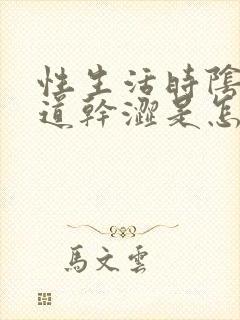 性生活時陰
道幹澀是怎
馬文雲